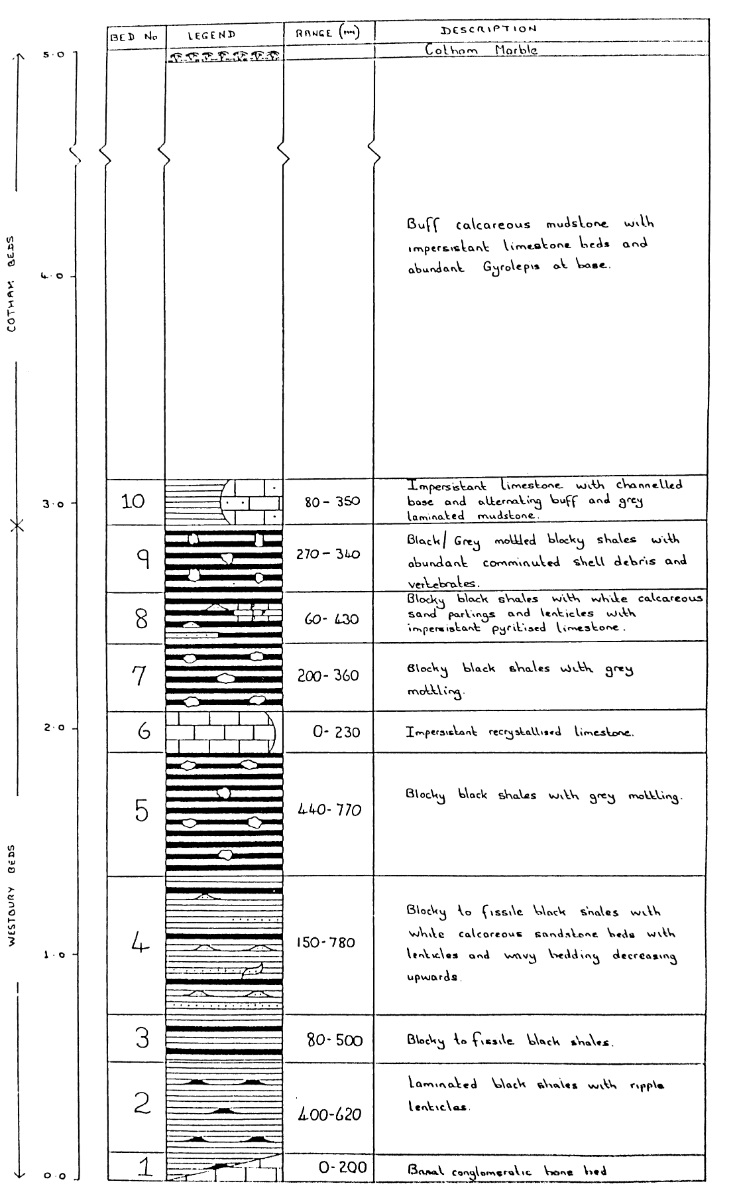 BED No LEGEND RANGE (mm) DESCRIPTION
5·0
Cotham Marble
Buff calcareous mudstone with
impersistant limestone beds and
abundant Gyrolepis at base.
COTHAM BEDS
4·0
10 80-350
Impersistant limestone with channelled
base and alternating buff and grey
laminated mudstone.
3·0
9 270-340
Black/Grey mottled blocky shales with
abundant comminuted shell debris and
vertebrates.
8 60-430
Blocky black shales with white calcareous
sand partings and lenticles with
impersistant pyritised limestone.
7 200-360
Blocky black shales with grey
mottling.
2·0
6 0-230
Impersistant recrystallised limestone.
5 440-770
Blocky black shales with grey mottling.
WESTBURY BEDS
4 150-780
Blocky to fissile black shales with
white calcareous sandstone beds with
lenticles and wavy bedding decreasing
upwards.
1·0
3 80-500
Blocky to fissile black shales.
2 400-620
Laminated black shales with ripple
lenticles.
1 0-200
Basal conglomeratic bone bed
0·0